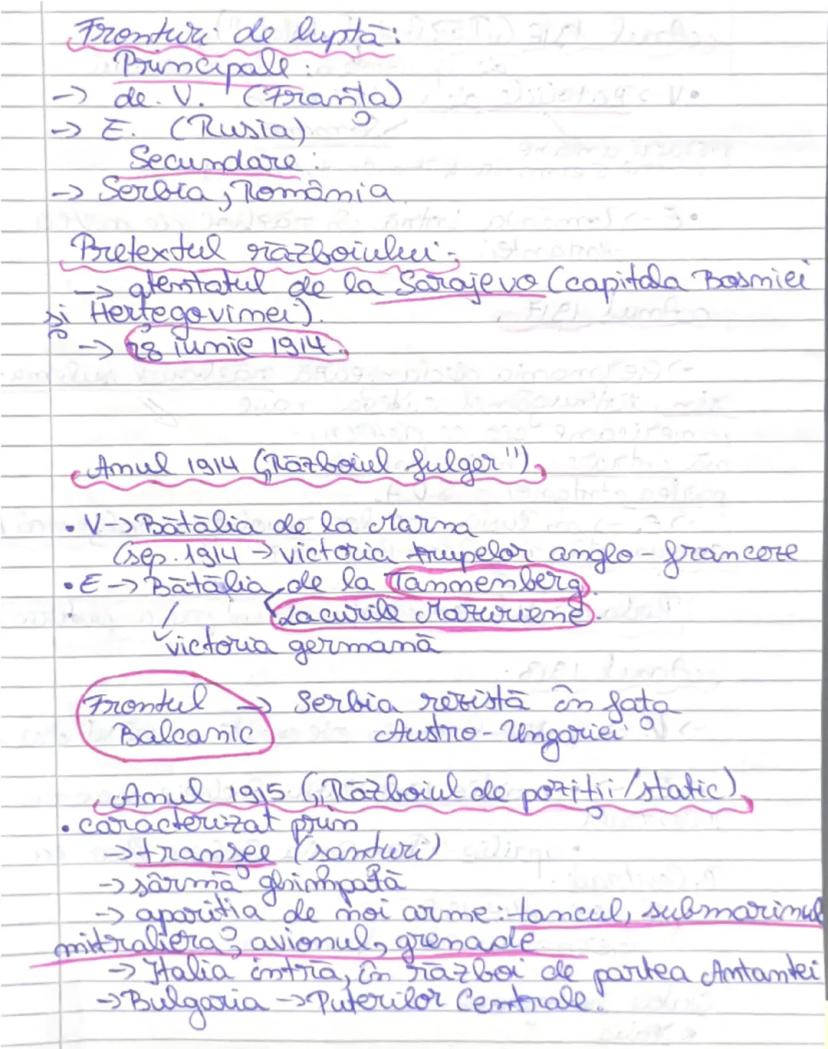 Fronturi de luptă:
Principale:
→ de. V. (Franța)
→ E. (Rusia)
Secundare:
→ Serbia, România
Pretextul războiului:
→ atentatul de la Sarajevo (capitala Bosniei
și Herțegovinei).
→ 28 iunie 1914.
Anul 1914 („Războiul fulger")
• V → Bătălia de la Marna
(sep. 1914 → victoria trupelor anglo-franceze
• E → Bătălia de la Tannenberg.
Lacurile Mazuriene.
victoria germană
Frontul → Serbia rezistă în fața
Balcanic Austro-Ungariei
Anul 1915 („Războiul de poziții/static)
• caracterizat prin
→ tranșee (șanțuri)
→ sârmă ghimpată
→ apariția de noi arme: tancul, submarinul
mitraliera, avionul, grenade
→ Italia intră, în război de partea Antantei
→ Bulgaria → Puterilor Centrale.